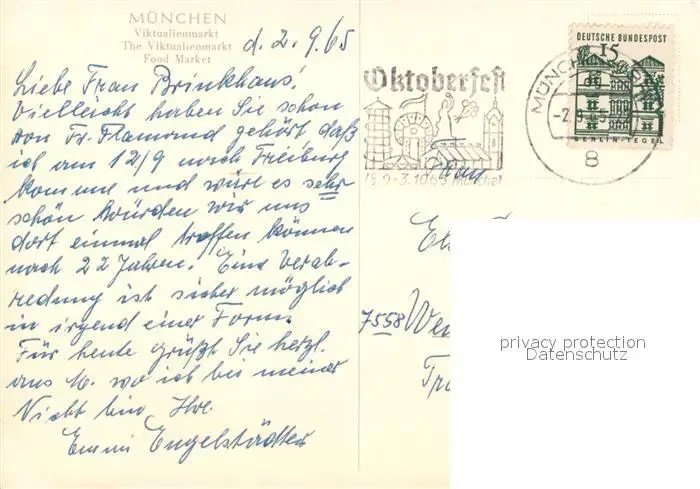 MÜNCHEN
Viktualienmarkt
The Viktualienmarkt
Food Market
d. 2.9.65
Liebe Frau Brinkhaus!
Vielleicht haben Sie schon
von Fr. gehört daß
ich am 12/9 nach Freiburg
komme und würde es sehr
schön würden wir uns
dort einmal treffen können
nach 22 Jahren. Eine Verab-
redung ist sicher möglich
in irgend einer Form.
Für heute grüßt Sie herzl.
aus M. wo ich bei meiner
Nicht bin, Ihre
Emmi Engelstädter
Oktoberfest
18.9.-3. 1965 München
DEUTSCHE BUNDESPOST
15
BERLIN-TEGEL
MÜNCHEN
-2.9.65
8
7558
privacy protection
Datenschutz